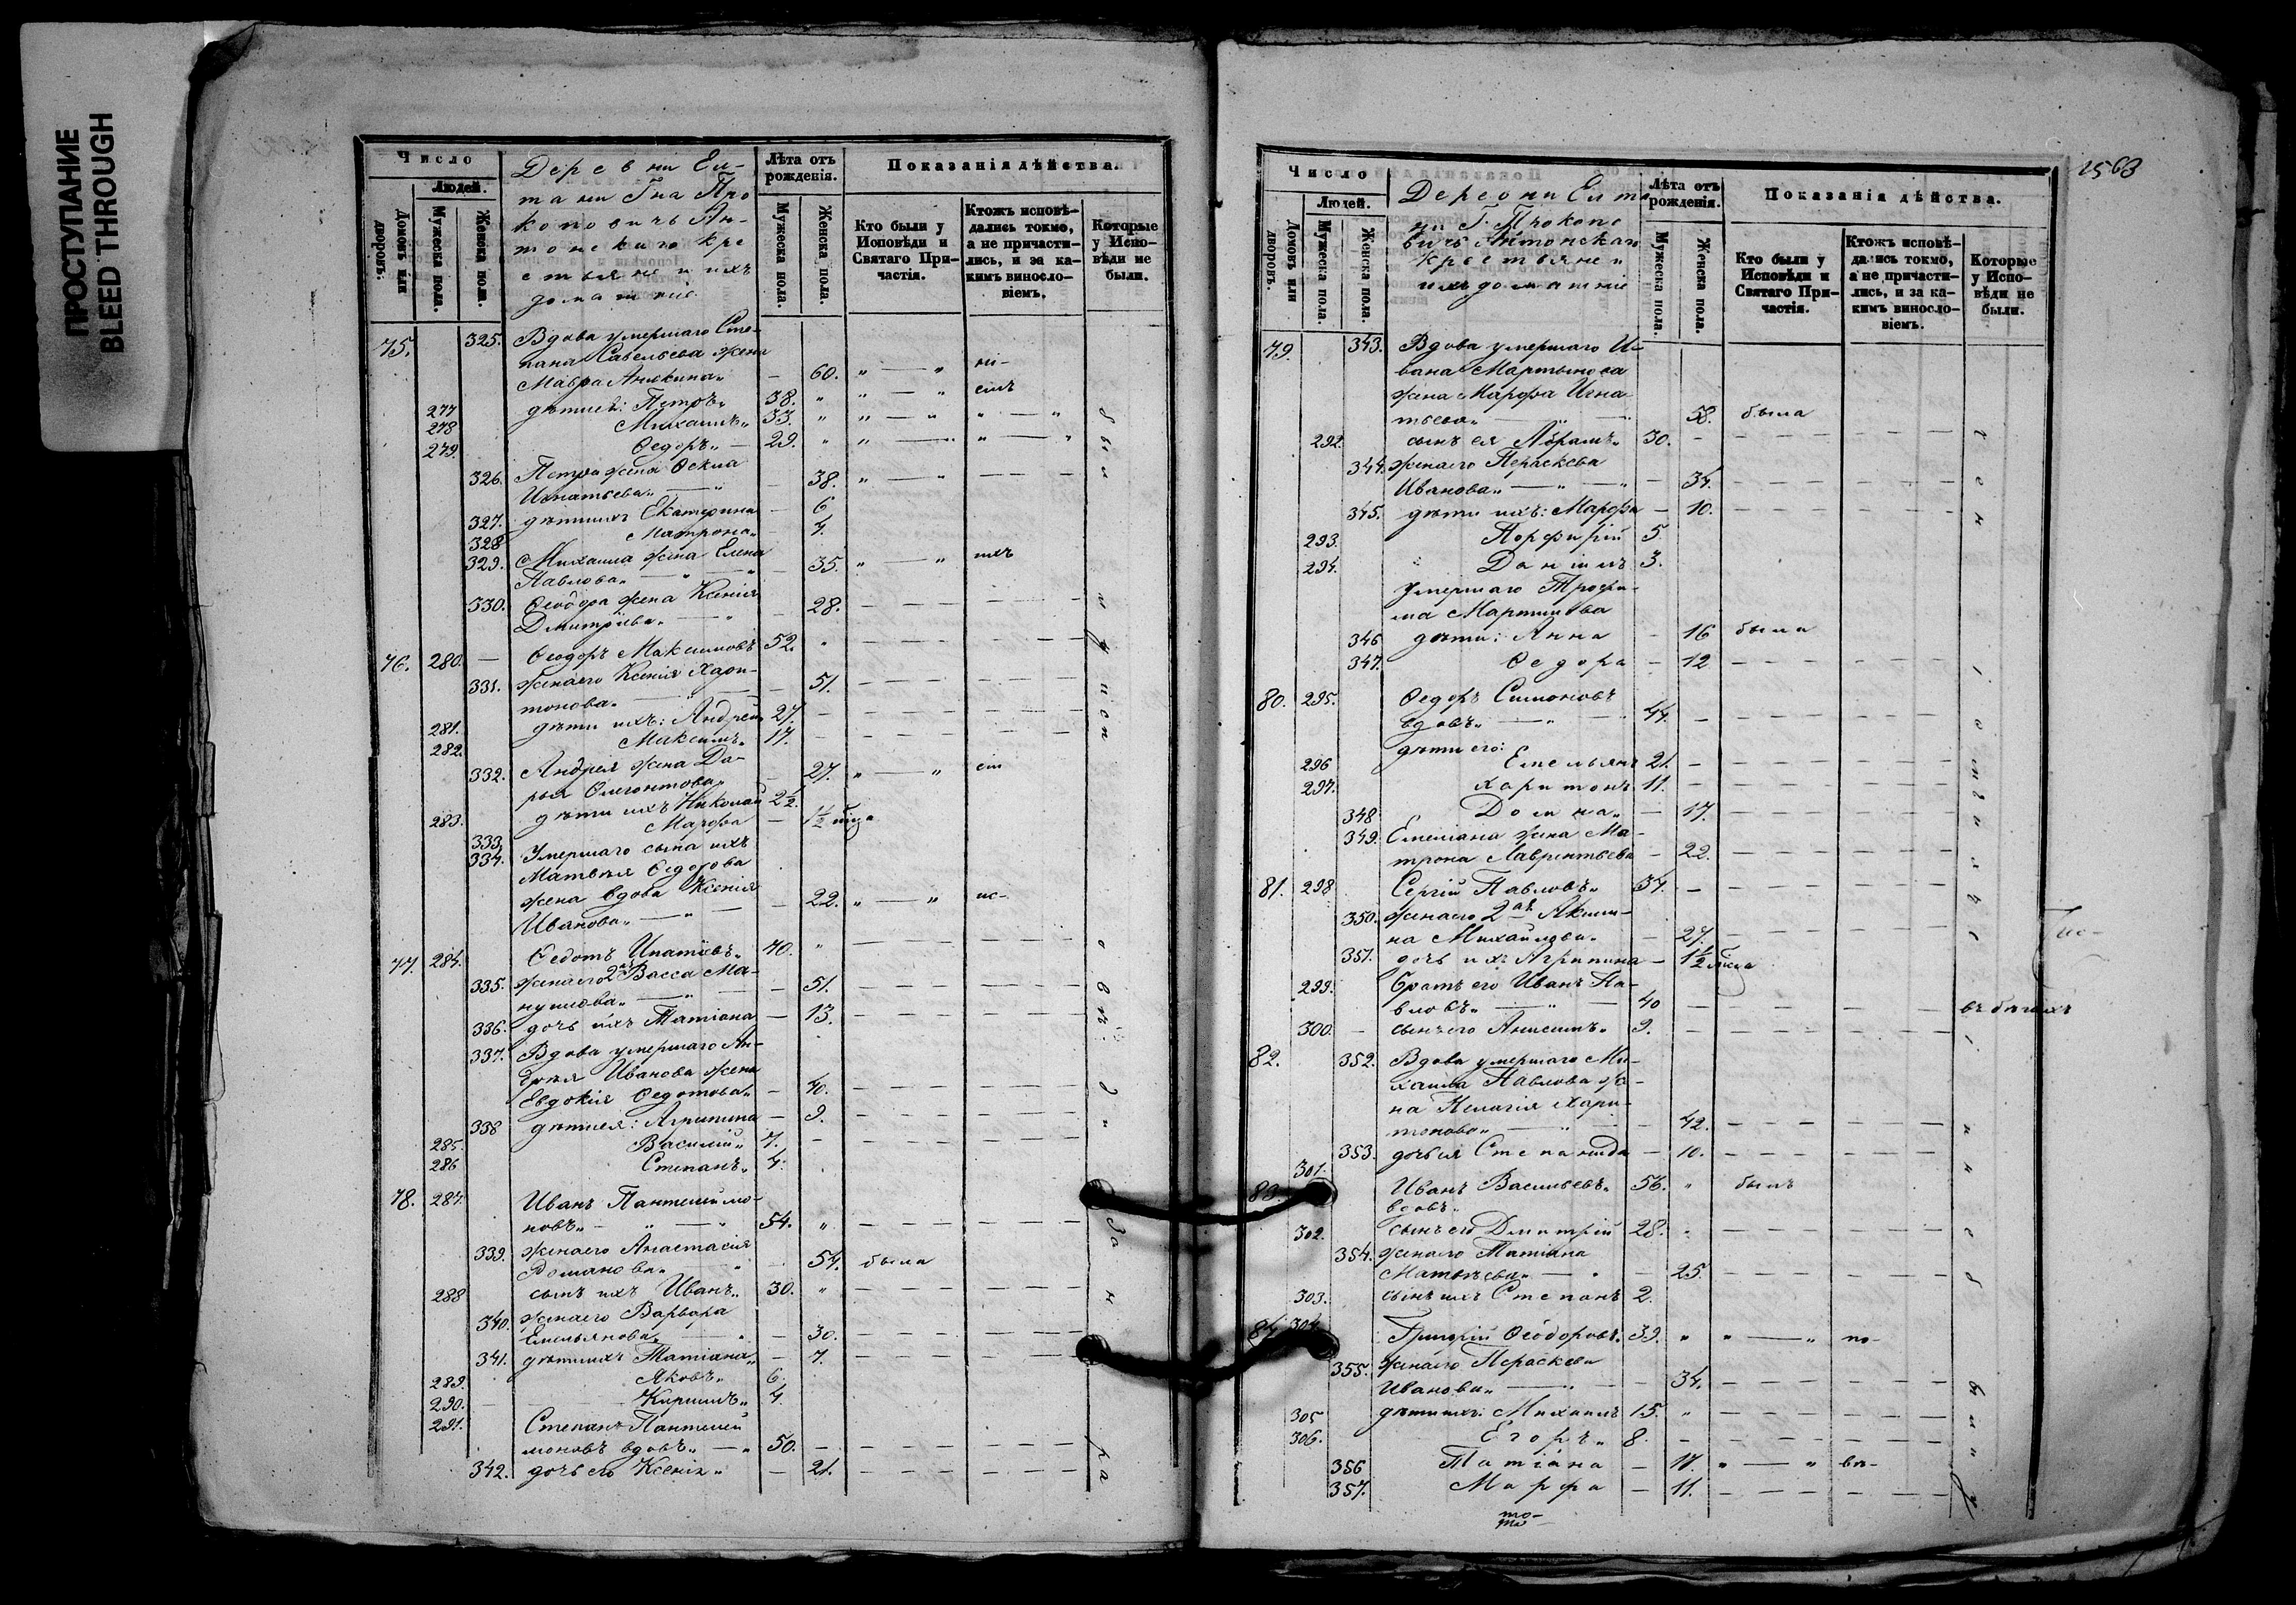 ПРОСТУПАНИЕ
BLEED THROUGH
Число
Людей.
Домовъ или дворовъ.
Мужеска пола.
Женска пола.
Деревни Ел-
тани Гна Про
коповичъ Ан-
тонскаго кре
стьяне и ихъ
домашніе.
Лѣта отъ рожденія.
Мужеска пола.
Женска пола.
Показанія дѣйства.
Кто были у Исповѣди и Святаго При-частія.
Ктожъ исповѣ-дались токмо, а не причасти-лись, и за ка-кимъ винословіемъ.
Которые у Испо-вѣди не были.
75. 325. Вдова умершаго Сте-
пана Савельева жена
Мавра Аникина 60.
277 дѣти ей: Петръ 38.
278 Михаилъ 33.
279. Ѳедоръ 29.
326. Петра жена Ѳекла
Игнатьева 38.
327. дѣти ихъ Екатерина 6
328 Матрона 4.
329. Михаила жена Елена
Павлова 35.
330. Ѳеодора жена Ксенія
Дмитріева 28.
76. 280. Ѳеодоръ Максимовъ 52.
331. жена его Ксенія Хари-
тонова 51.
281. дѣти ихъ: Андрей 27.
282. Максимъ 17.
332. Андрея жена Да-
рья 27.
283. дѣти ихъ Николай 2½.
333. Марфа 1½
334. Умершаго сына ихъ
Матвѣя Ѳедорова
жена вдова Ксенія
Иванова 22.
77. 284. Ѳедотъ Ипатіевъ 70.
335. жена его 2ая Васса Ма-
нуилова 51.
336. дочь ихъ Татіана 13.
337. Вдова умершаго Ан-
дрея Иванова жена
Евдокія Ѳедотова 40.
338 дѣти ея: Агрипина 9.
285. Василій 7.
286 Степанъ 4.
78. 287. Иванъ Пантелеймо-
новъ 54.
339. жена его Анастасія
Романова 54. была
288 сынъ ихъ Иванъ 30.
340. жена его Варвара
Емельянова 30.
341. дѣти ихъ Татіана 7.
289. Яковъ 6.
290. Кирилъ 4.
291. Степанъ Пантелей
моновъ вдовъ 50.
342. дочь его Ксенія 21.
1563
Число
Людей.
Домовъ или дворовъ.
Мужеска пола.
Женска пола.
Деревни Елта
ни Г. Прокопо
вичъ Антонскаго
крестьяне и
ихъ домашніе
Лѣта отъ рожденія.
Мужеска пола.
Женска пола.
Показанія дѣйства.
Кто были у Исповѣди и Святаго При-частія.
Ктожъ исповѣ-дались токмо, а не причасти-лись, и за ка-кимъ винословіемъ.
Которые у Испо-вѣди не были.
79. 343. Вдова умершаго И-
вана Мартынова
жена Марфа Игна
тьева 58. была
292. сынъ ея Абрамъ 30.
344. жена его Параскева
Иванова 34.
345. дѣти ихъ: Марфа 10.
293. Порфирій 5
294. Даніилъ 3.
Умершаго Трофи-
ма Мартынова
346 дѣти: Анна 16 была
347. Ѳедора 12
80. 295. Ѳедоръ Симоновъ
вдовъ 44.
дѣти его:
296 Емельянъ 21.
297. Харитонъ 11.
348 Домна 17.
349. Емеліана жена Ма-
трона Лаврентьева 22.
81. 298 Сергій Павловъ 37.
350. жена его 2ая Акили-
на Михайлова 27.
351. дочь ихъ Агрипина 1½
299. братъ его Иванъ Па-
вловъ 40 въ бѣгахъ
300. сынъ его Анисимъ 9.
82. 352. Вдова умершаго Ми-
хаила Павлова же-
на Пелагія Хари-
тонова 42.
353. дочь ея Степанида 10.
83. 301. Иванъ Васильевъ 56. былъ
вдовъ
302. сынъ его Дмитрій 28.
354. жена его Татіана
Матвѣева 25.
303. сынъ ихъ Степанъ 2.
84. 304. Григорій Ѳеодоровъ 39.
355. жена его Параскева
Иванова 34.
305 дѣти ихъ: Михаилъ 15.
306. Егоръ 8.
356 Татіана 17.
357. Марфа 11.